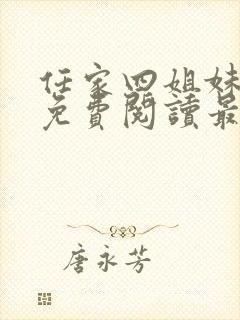 任家四姐妹
免費閱讀最
唐永芳